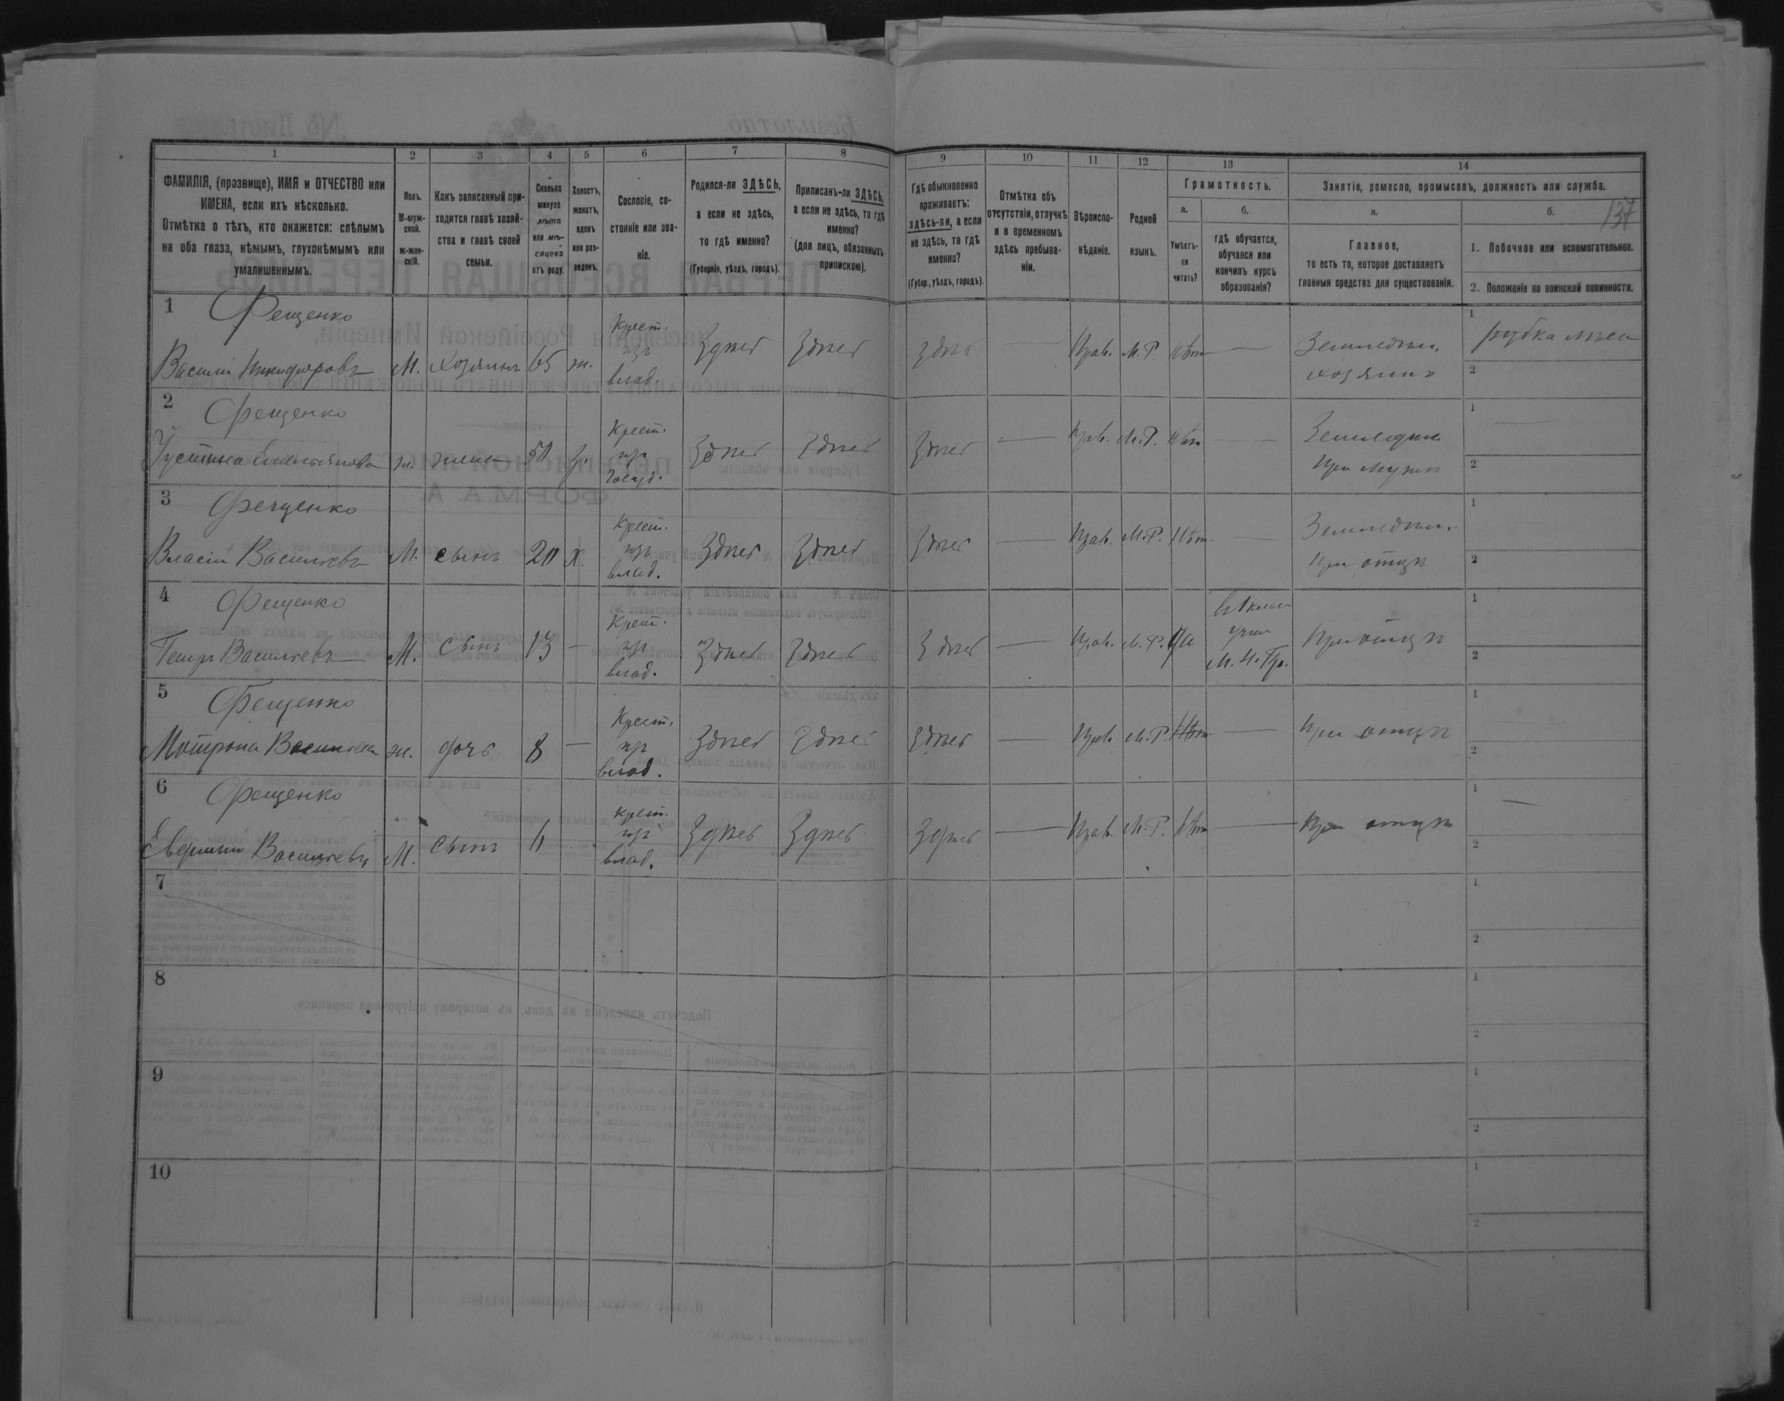 137
1 2 3 4 5 6 7 8 9 10 11 12 13 14
ФАМИЛІЯ, (прозвище), ИМЯ и ОТЧЕСТВО или
ИМЕНА, если ихъ нѣсколько.
Отмѣтка о тѣхъ, кто окажется: слѣпымъ
на оба глаза, нѣмымъ, глухонѣмымъ или
умалишеннымъ.
Полъ.
М-муж-
ской.
ж-жен-
скій.
Какъ записанный при-
ходится главѣ хозяй-
ства и главѣ своей
семьи.
Сколько
минуло
лѣтъ
или мѣ-
сяцевъ
отъ роду.
Холостъ,
женатъ,
вдовъ
или раз-
веденъ.
Сословіе, со-
стояніе или зва-
ніе.
Родился-ли ЗДѢСЬ,
а если не здѣсь,
то гдѣ именно?
(Губернія, уѣздъ, городъ).
Приписанъ-ли ЗДѢСЬ,
а если не здѣсь, то гдѣ
именно?
(для лицъ, обязанныхъ
припискою).
Гдѣ обыкновенно
проживаетъ:
здѣсь-ли, а если
не здѣсь, то гдѣ
именно?
(Губер., уѣздъ, городъ).
Отмѣтка объ
отсутствіи, отлучкѣ
и о временномъ
здѣсь пребыва-
ніи.
Вѣроиспо-
вѣданіе.
Родной
языкъ.
Грамотность.
а.
Умѣетъ-
ли
читать?
б.
гдѣ обучается,
обучался или
кончилъ курсъ
образованія?
Занятіе, ремесло, промыселъ, должность или служба.
а.
Главное,
то есть то, которое доставляетъ
главныя средства для существованія.
б.
1. Побочное или вспомогательное.
2. Положеніе по воинской повинности.
1 Фещенко
Василій Никифоровъ М. хозяинъ 65 ж. Крест. изъ влад. Здѣсь Здѣсь Здѣсь — Прав. М.Р. Нѣтъ — Земледѣл. хозяинъ 1 рубка лѣса
2
2 Фещенко
Устинья Емельянова ж. жена Крест. из Госуд. Здѣсь Здѣсь Здѣсь — Прав. М.Р. Нѣтъ — при мужѣ 1 —
2
3 Фещенко
Власій Васильевъ М. сынъ 20 х. Крест. изъ влад. Здѣсь Здѣсь Здѣсь — Прав. М.Р. Нѣтъ — Земледѣл. при отцѣ 1
2
4 Фещенко
Петръ Васильевъ М. сынъ 13 — Крест. изъ влад. Здѣсь Здѣсь Здѣсь — Прав. М.Р. Да При отцѣ 1
2
5 Фещенко
Мотрона Васильева ж. дочь 8 — Крест. из влад. Здѣсь Здѣсь Здѣсь — Прав. М.Р. Нѣтъ — При отцѣ 1
2
6 Фещенко
Васильевъ М. сынъ Крест. изъ влад. Здѣсь Здѣсь Здѣсь — Прав. М.Р. Нѣтъ — При отцѣ 1 —
2
7 1
2
8 1
2
9 1
2
10 1
2